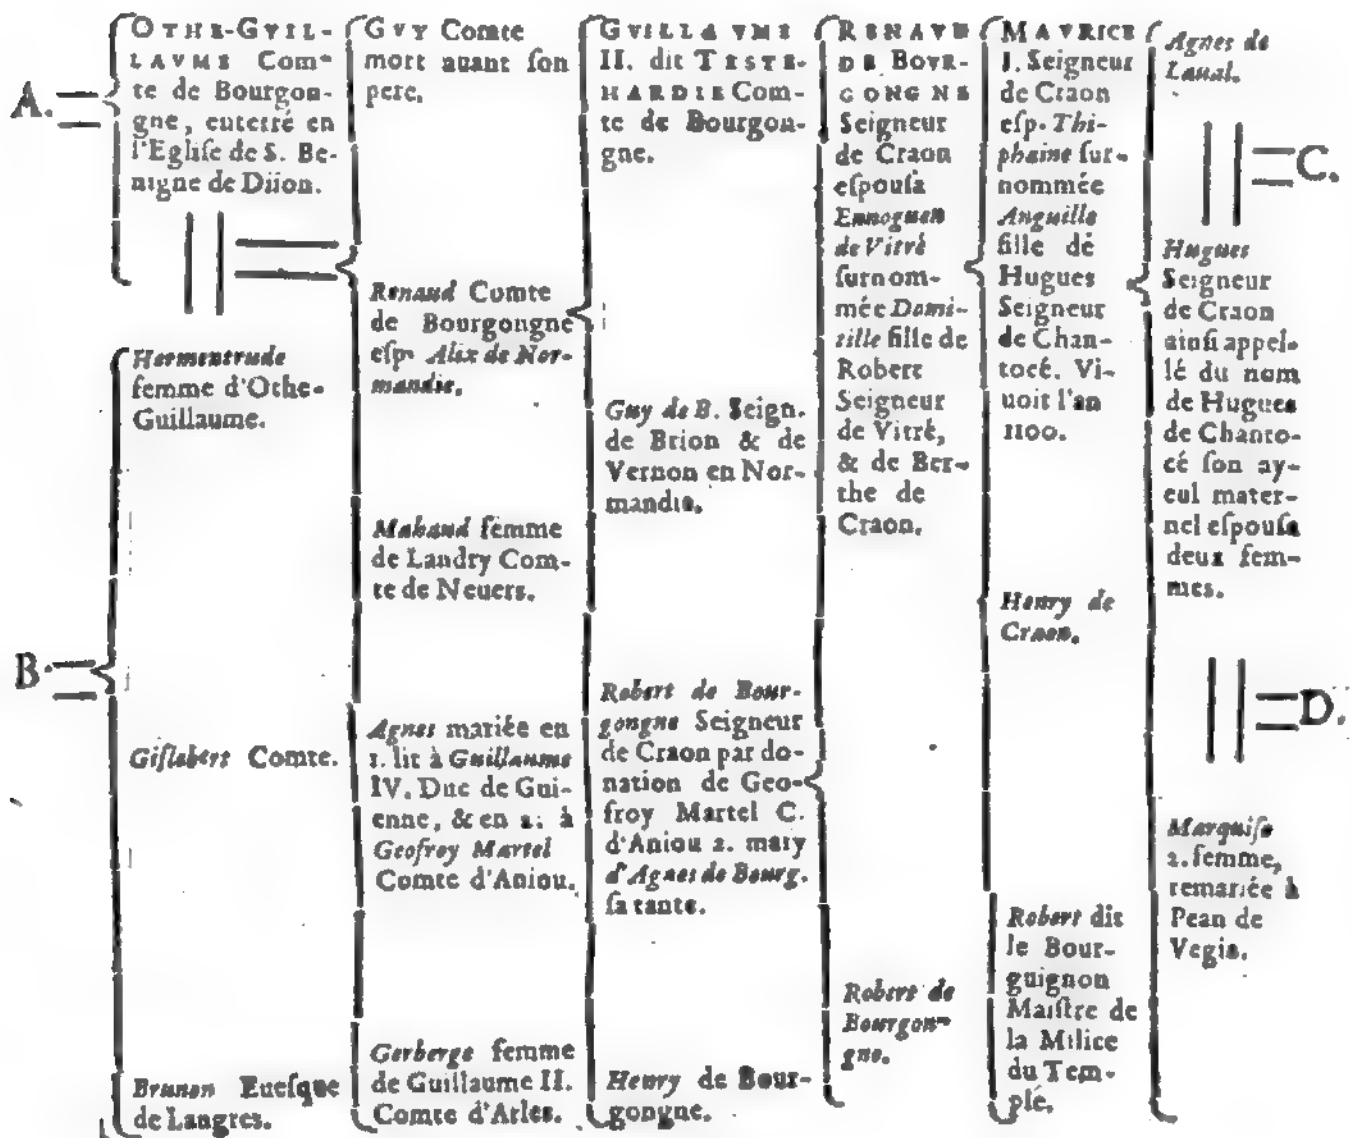 A.
OTHE-GVIL-
LAVME Com-
te de Bourgon-
gne, enterré en
l'Eglise de S. Be-
nigne de Diion.
B.
Hermentrude
femme d'Othe-
Guillaume.
Gislebert Comte.
Brunon Euesque
de Langres.
GVY Comte
mort auant son
pere.
Renaud Comte
de Bourgongne
esp. Alix de Nor-
mandie.
Mahaud femme
de Landry Com-
te de Neuers.
Agnes mariée en
1. lit à Guillaume
IV. Duc de Gui-
enne, & en 2. à
Geofroy Martel
Comte d'Aniou.
Gerberge femme
de Guillaume II.
Comte d'Arles.
GVILLAVME
II. dit TESTE-
HARDIE Com-
te de Bourgon-
gne.
Guy de B. Seign.
de Brion & de
Vernon en Nor-
mandie.
Robert de Bour-
gongne Seigneur
de Craon par do-
nation de Geo-
froy Martel C.
d'Aniou 2. mary
d'Agnes de Bourg.
sa tante.
Henry de Bour-
gongne.
RENAVD
DE BOVR-
GONGNE
Seigneur
de Craon
espousa
Ennoguen
de Vitré
surnom-
mée Domi-
tille fille de
Robert
Seigneur
de Vitré,
& de Ber-
the de
Craon.
Robert de
Bourgon-
gne.
MAVRICE
I. Seigneur
de Craon
esp. Thi-
phaine sur-
nommée
Anguille
fille de
Hugues
Seigneur
de Chan-
tocé. Vi-
uoit l'an
1100.
Henry de
Craon.
Robert dit
le Bour-
guignon
Maistre de
la Milice
du Tem-
ple.
Agnes de
Laual.
C.
Hugues
Seigneur
de Craon
ainsi appel-
lé du nom
de Hugues
de Chanto-
cé son ay-
eul mater-
nel espousa
deux fem-
mes.
D.
Marquise
2. femme,
remariée à
Pean de
Vegia.